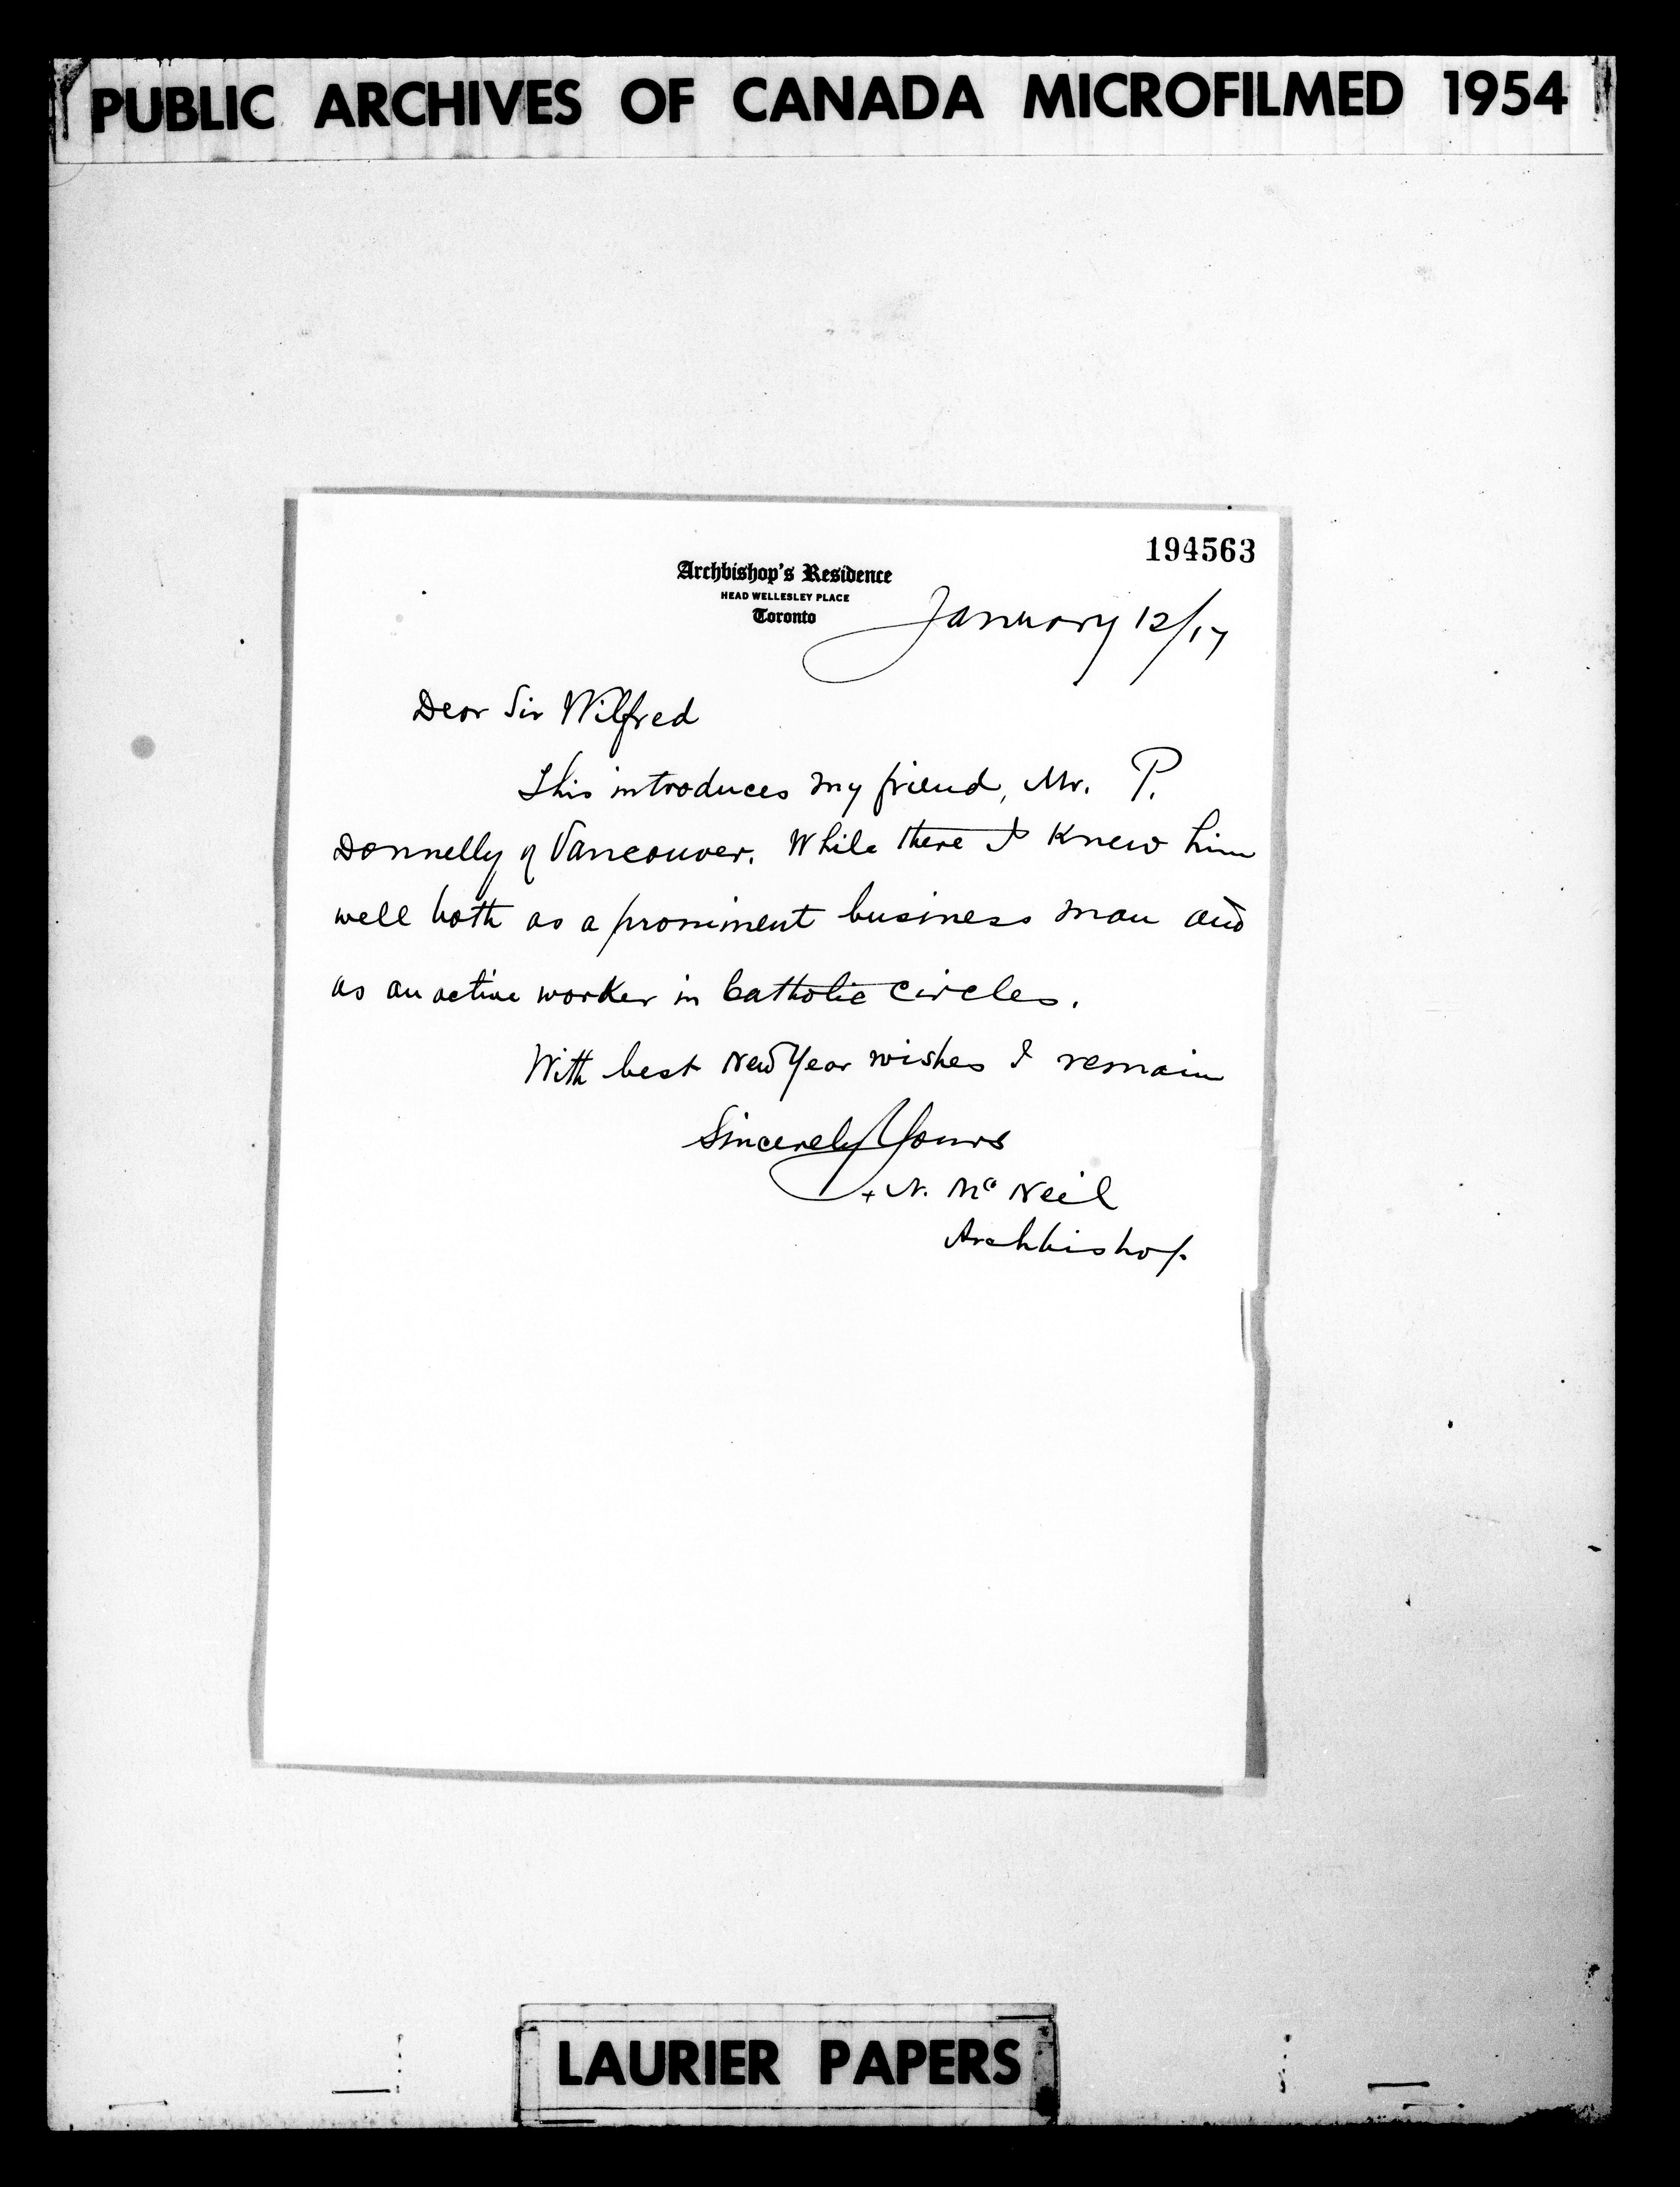 PUBLIC ARCHIVES OF CANADA MICROFILMED 1954
194563
Archbishop's Residence
HEAD WELLESLEY PLACE
Toronto
January 12/17
Dear Sir Wilfred
This introduces my friend, Mr. P.
Donnelly of Vancouver. While there I knew him
well both as a prominent business man and
as an active worker in Catholic circles.
With best New Year wishes I remain
Sincerely Yours
+ N. McNeil
Archbishop.
LAURIER PAPERS